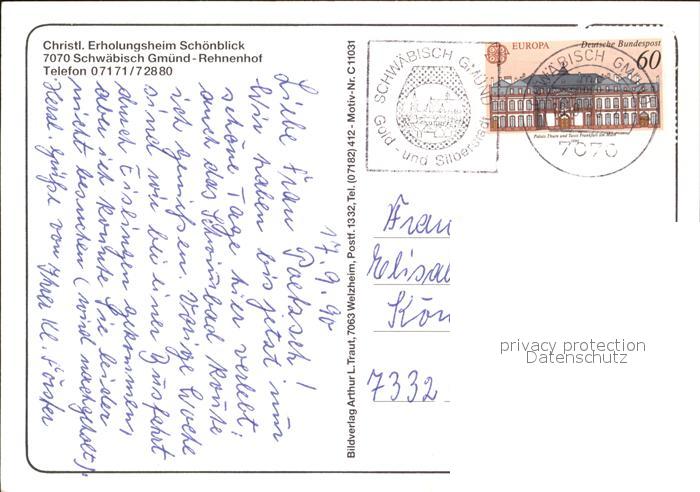 Christl. Erholungsheim Schönblick
7070 Schwäbisch Gmünd-Rehnenhof
Telefon 07171/72880
17.9.90
Liebe Frau Paetzsch!
Wir haben bis jetzt nur
schöne Tage hier verlebt,
auch das Schwimbad konnte
ich genießen. Vorige Woche
sind wir bei einer Busfahrt
durch Eislingen gekommen,
aber ich konnte Sie leider
nicht besuchen (wird nachgeholt),
Herzl. Grüße von Ihrer Kl. Förster
Bildverlag Arthur L. Traut, 7063 Welzheim, Postf. 1332, Tel. (07182) 412 - Motiv-Nr. C 11031
SCHWÄBISCH GMÜND
Gold- und Silberstadt
EUROPA Deutsche Bundespost
60
Palais Thurn und Taxis Frankfurt am Main
WÄBISCH GMÜ
7070
Frau
Elisa
Kön
7332
privacy protection
Datenschutz